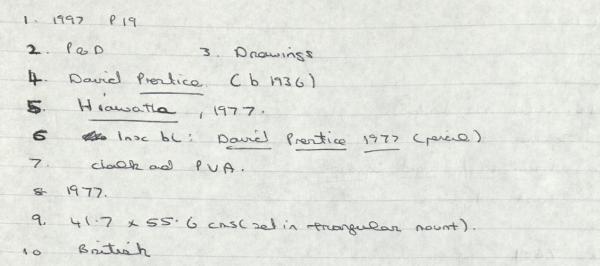 1. 1997 P19
2. P&D 3. Drawings
4. David Prentice. (b 1936)
5. Hiawatha, 1977.
6 Insc bl: David Prentice 1977 (pencil)
7. chalk and PVA.
8 1977.
9. 41.7 x 55.6 cms (set in triangular mount).
10 British